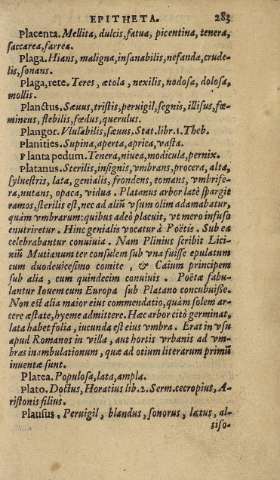 EPITHETA. 283
Placenta. Mellita, dulcis, fatua, picentina, tenera,
saccarea, farrea.
Plaga. Hians, maligna, insanabilis, nefanda, crude-
lis, sonans.
Plaga, rete. Teres, ætola, nexilis, nodosa, dolosa,
mollis.
Planctus. Sæuus, tristis, peruigil, segnis, illisus, fœ-
mineus, flebilis, fœdus, querulus.
Plangor. Vlulabilis, sæuus, Stat. libr. 1. Theb.
Planities. Supina, aperta, aprica, vasta.
Planta pedum. Tenera, niuea, modicula, pernix.
Platanus. Sterilis, insignis, vmbrans, procera, alta,
syluestris, lata, genialis, frondens, comans, vmbrife-
ra, nutans, opaca, vidua. Platanus arbor latè spargit
ramos, sterilis est, nec ad aliũ vsum olim adamabatur,
quàm vmbrarum: quibus adeò placuit, vt mero infuso
enutriretur. Hinc genialis vocatur à Poëtis. Sub ea
celebrabantur conuiuia. Nam Plinius scribit Lici-
niũ Mutianum ter consulem sub vna fuisse epulatum
cum duodeuicesimo comite, & Caium principem
sub alia, cum quindecim conuiuis. Poëtæ fabu-
lantur Iouem cum Europa sub Platano concubuisse.
Non est alia maior eius commendatio, quàm solem ar-
cere æstate, hyeme admittere. Hæc arbor citò germinat,
lata habet folia, iucunda est eius vmbra. Erat in vsu
apud Romanos in villa, aut hortis vrbanis ad vm-
bras inambulationum, quæ ad otium literarum primũ
inuentæ sunt.
Platea. Populosa, lata, ampla.
Plato. Doctus, Horatius lib. 2. Serm. cecropius, A-
ristonis filius.
Plausus. Peruigil, blandus, sonorus, lætus, al-
tiso-